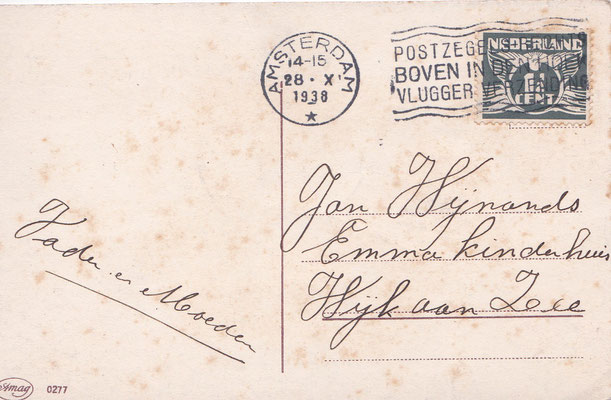 AMSTERDAM
14-15
28 · X
1938
POSTZEGE
BOVEN IN
VLUGGER VERZENDING
NEDERLAND
CENT
Jan Wijnands
Emma kinderhuis
Wijk aan Zee
Vader en Moeder
Amag
0277